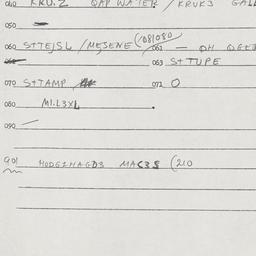 040 KRU.Z QAP WATER / KRUKS GALL
050
060 STTEJSL / MESENE (081080 061 — OH
063 STTUPE
070 STTAMP 072 O
080 M1.L3XL
090
901 HODGZNAGD3 MAC3S (210